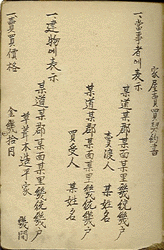 家屋賣買契約書
一 當事者ノ表示
某道某郡某面某里幾統幾戶
賣渡人 某姓名
某道某郡某面某里幾統幾戶
買受人 某姓名
一 建物ノ表示
某道某郡某面某里幾統幾戶
草葺木造平家 幾間
一 賣買價格
金幾拾円